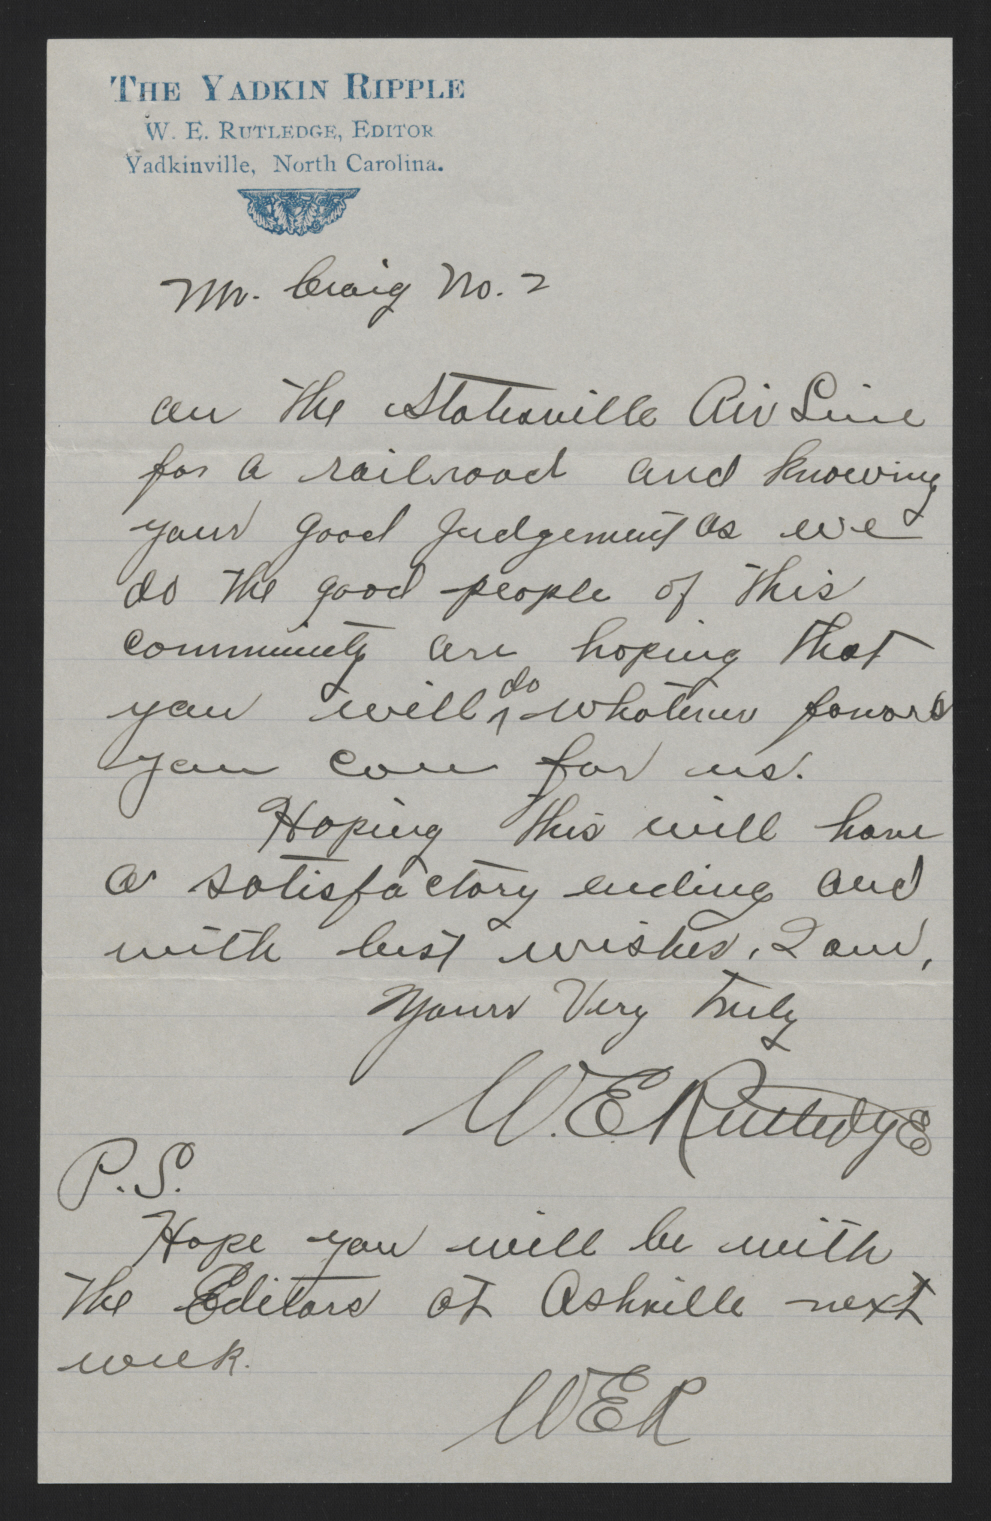 THE YADKIN RIPPLE
W. E. RUTLEDGE, EDITOR
Yadkinville, North Carolina.
Mr. Craig No. 2
on the Statesville Air Line
for a railroad and knowing
your good judgement as we
do the good people of this
community are hoping that
you will do whatever favors
you can for us.
Hoping this will have
a satisfactory ending and
with best wishes, I am,
Yours Very Truly
W. E. Rutledge
P.S.
Hope you will be with
the Editors at Ashville next
week.
WER